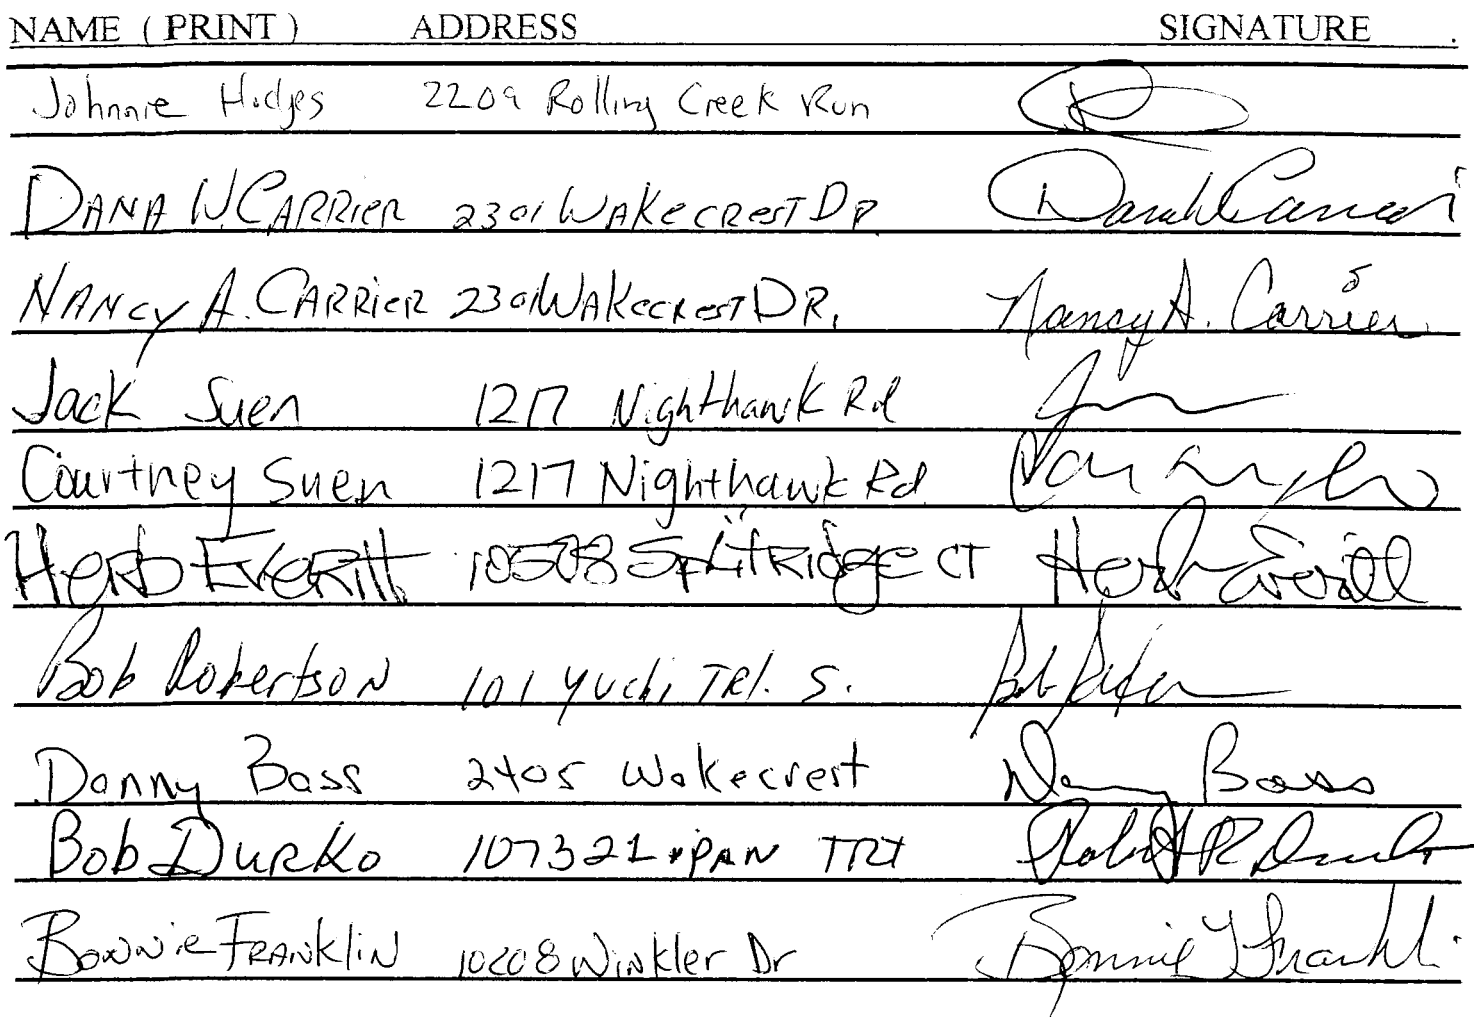 NAME ( PRINT ) ADDRESS SIGNATURE
Johnnie Hodges 2209 Rolling Creek Run
DANA W. CARRIER 2301 WAKECREST DR
NANCY A. CARRIER 2301 WAKECREST DR. Nancy A. Carrier
Jack Suen 1217 Nighthawk Rd
Courtney Suen 1217 Nighthawk Rd
Herb Everitt 10508 Splitridge CT Herb Everitt
Bob Robertson 101 Yuchi TRl. S.
Danny Bass 2405 Wakecrest Danny Bass
Bob DURKO TRL
Bonnie FRANKLIN 10208 Winkler Dr Bonnie Franklin